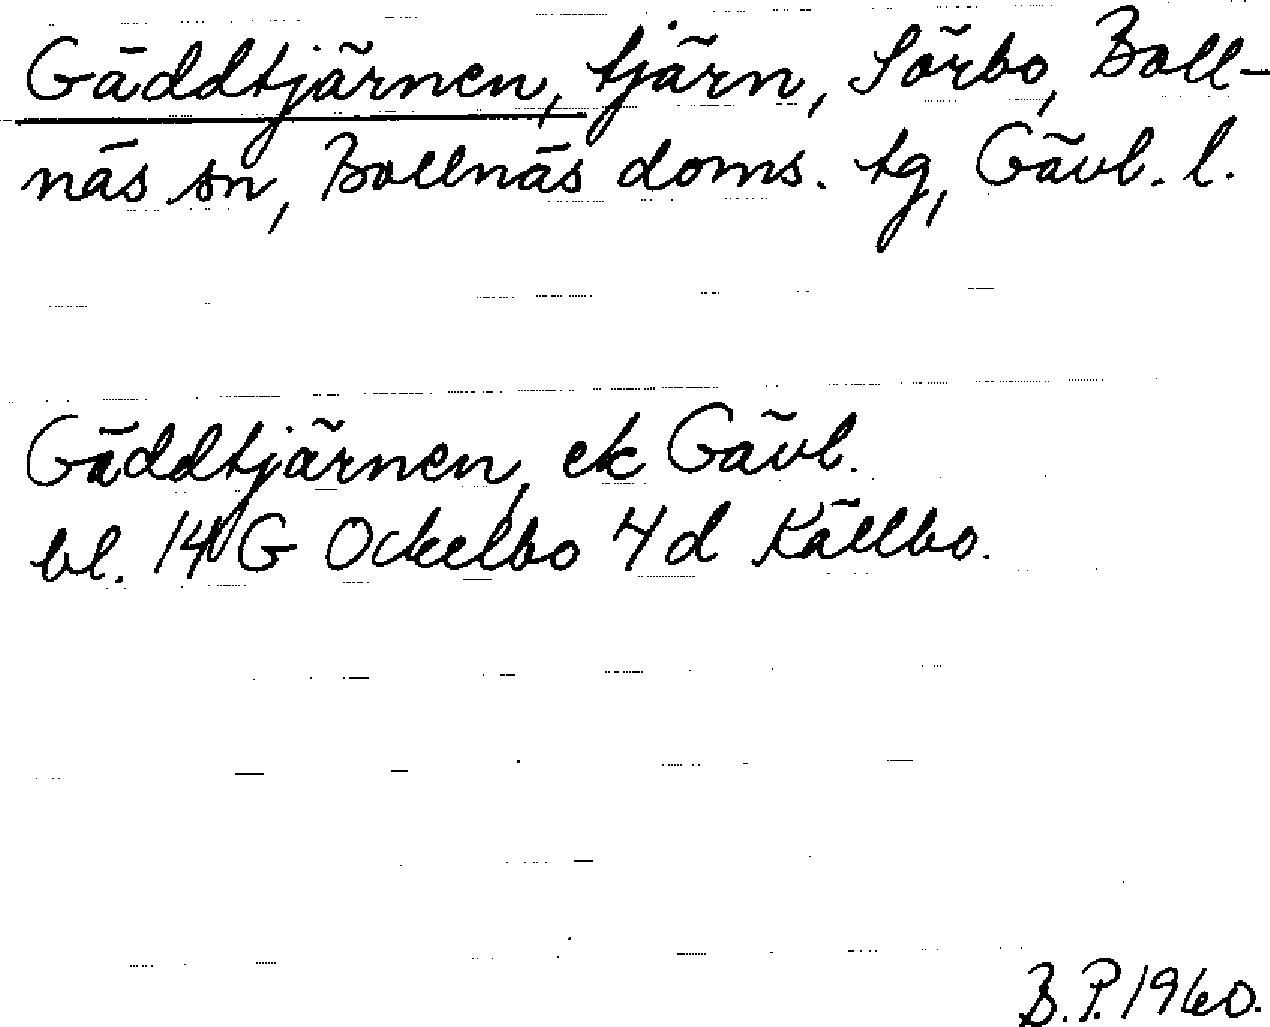 Gäddtjärnen, tjärn, Sörbo, Boll-
näs sn, Bollnäs doms. tg, Gävl. l.
Gäddtjärnen, ek Gävl.
bl. 14 G Ockelbo 4 d Källbo.
B.P. 1960.